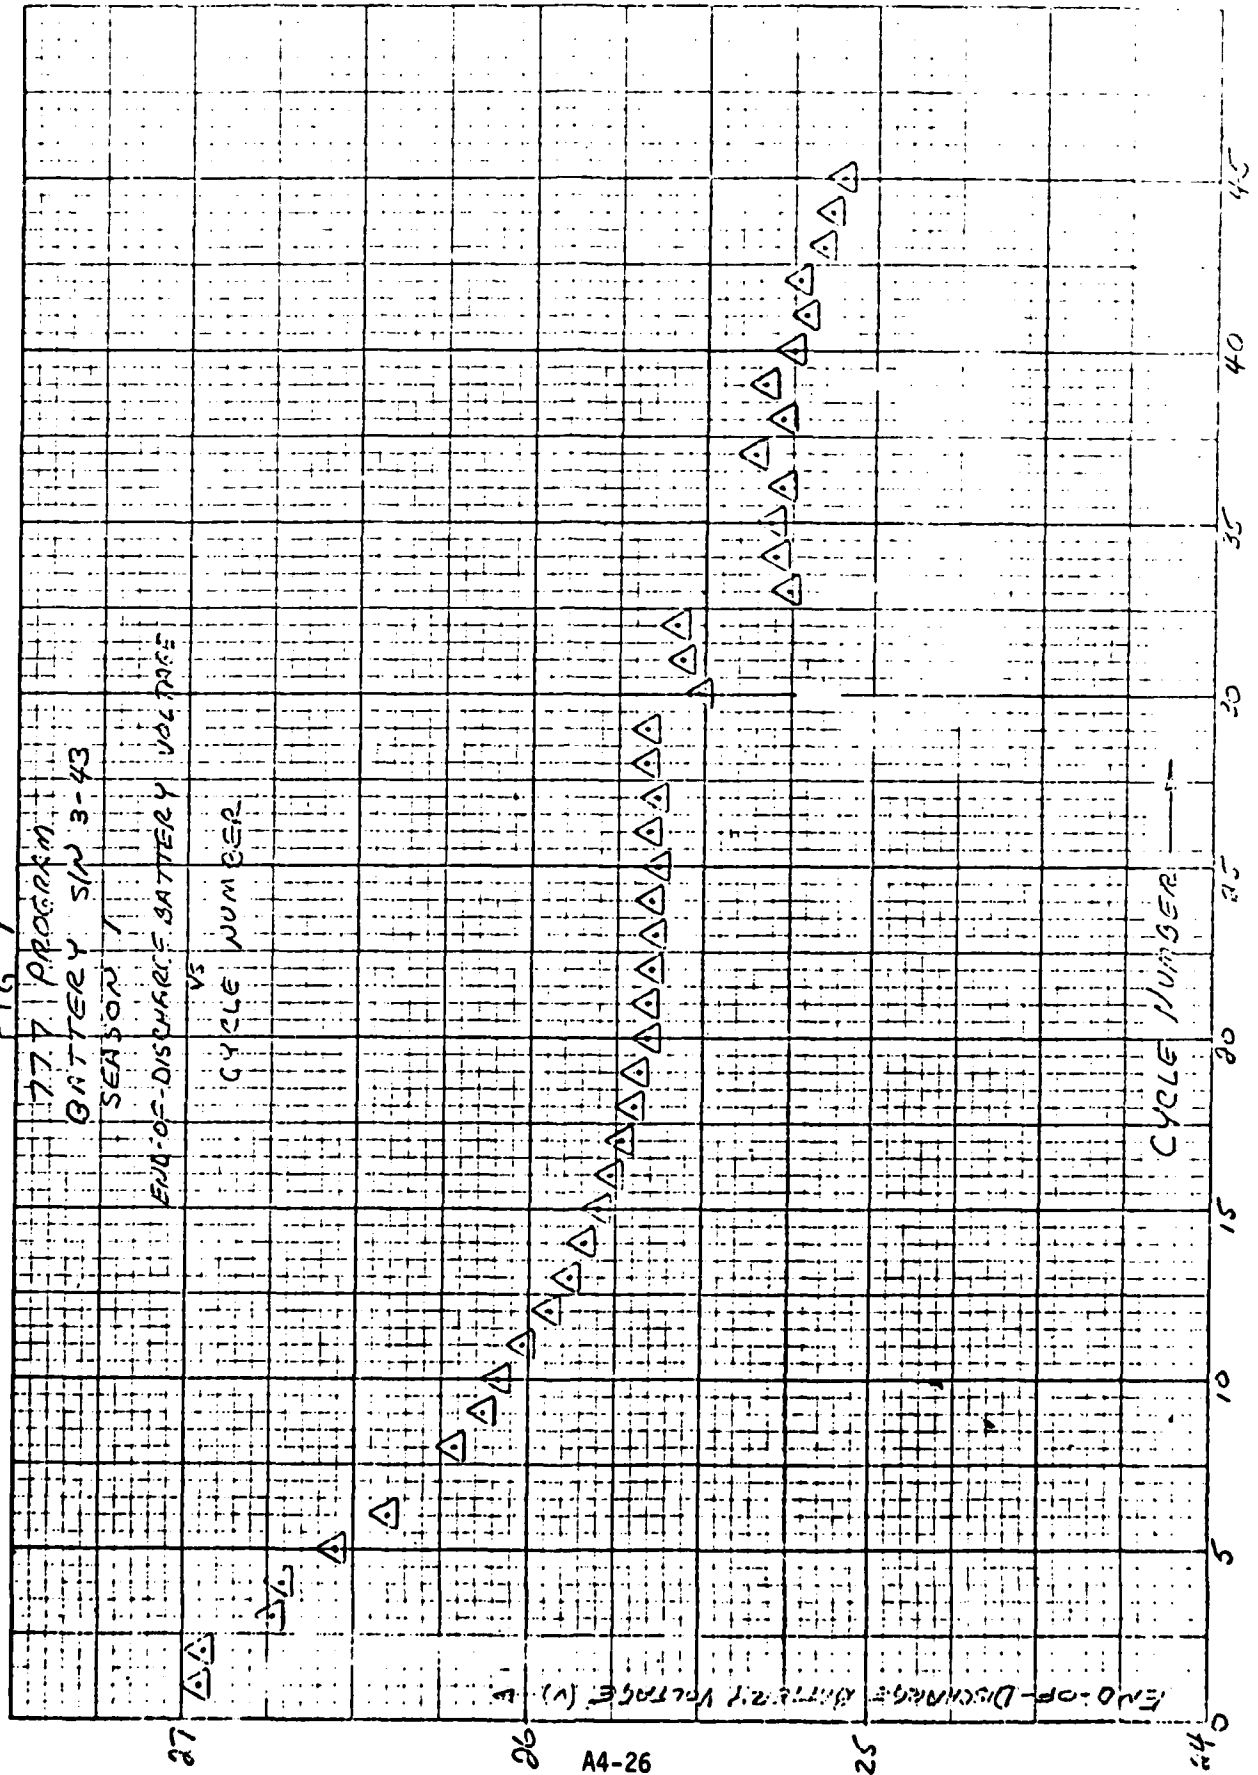 FIG 1
777 PROGRAM
BATTERY S/N 3-43
SEASON 1
END-OF-DISCHARGE BATTERY VOLTAGE
VS
CYCLE NUMBER
END-OF-DISCHARGE BATTERY VOLTAGE (V)
27
26
25
24
0 5 10 15 20 25 30 35 40 45
CYCLE NUMBER
A4-26